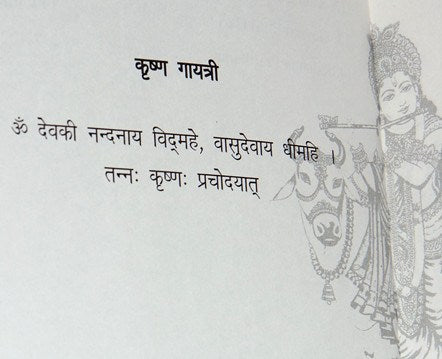 कृष्ण गायत्री
ॐ देवकी नन्दनाय विद्‌महे, वासुदेवाय धीमहि ।
तन्नः कृष्णः प्रचोदयात्